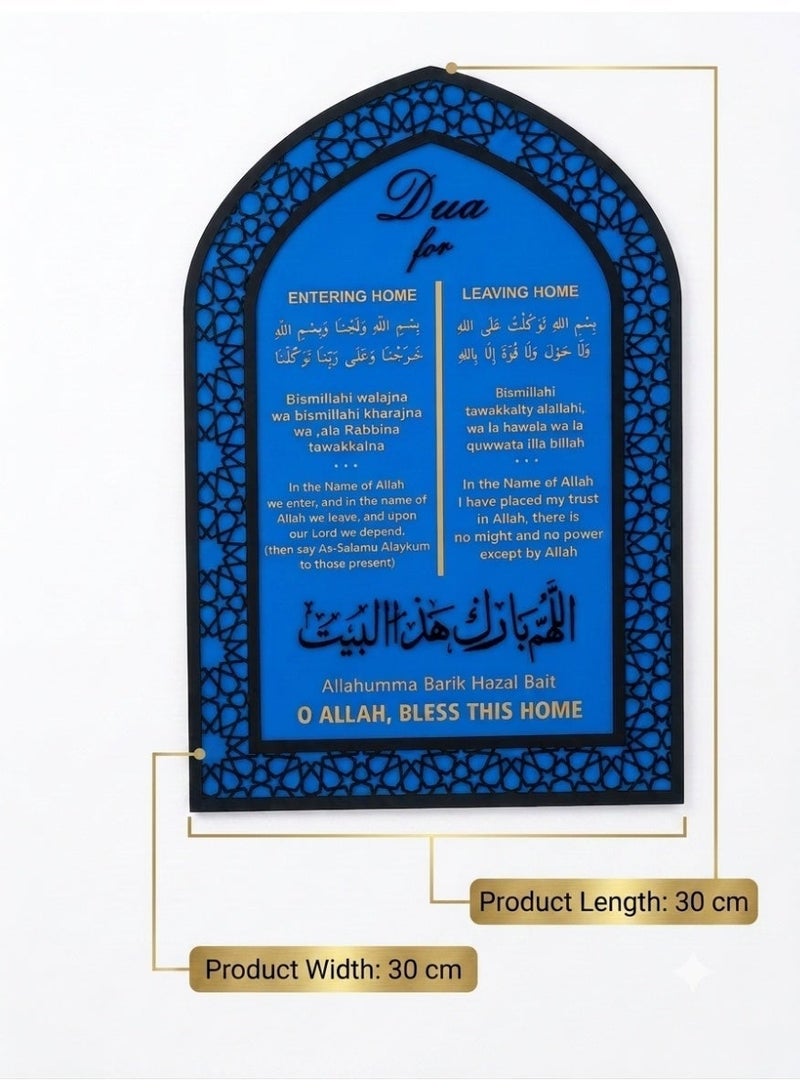 Dua
for
ENTERING HOME
بِسْمِ اللّٰهِ وَلَجْنَا وَبِسْمِ اللّٰهِ
خَرَجْنَا وَعَلَى رَبِّنَا تَوَكَّلْنَا
Bismillahi walajna
wa bismillahi kharajna
wa ,ala Rabbina
tawakkalna
In the Name of Allah
we enter, and in the name of
Allah we leave, and upon
our Lord we depend.
(then say As-Salamu Alaykum
to those present)
LEAVING HOME
بِسْمِ اللهِ تَوَكَّلْتُ عَلَى اللهِ
وَلَا حَوْلَ وَلَا قُوَّةَ إِلَّا بِاللهِ
Bismillahi
tawakkalty alallahi,
wa la hawala wa la
quwwata illa billah
In the Name of Allah
I have placed my trust
in Allah, there is
no might and no power
except by Allah
اللَّهُمَّ بَارِكْ هَذَا البَيْتَ
Allahumma Barik Hazal Bait
O ALLAH, BLESS THIS HOME
Product Length: 30 cm
Product Width: 30 cm